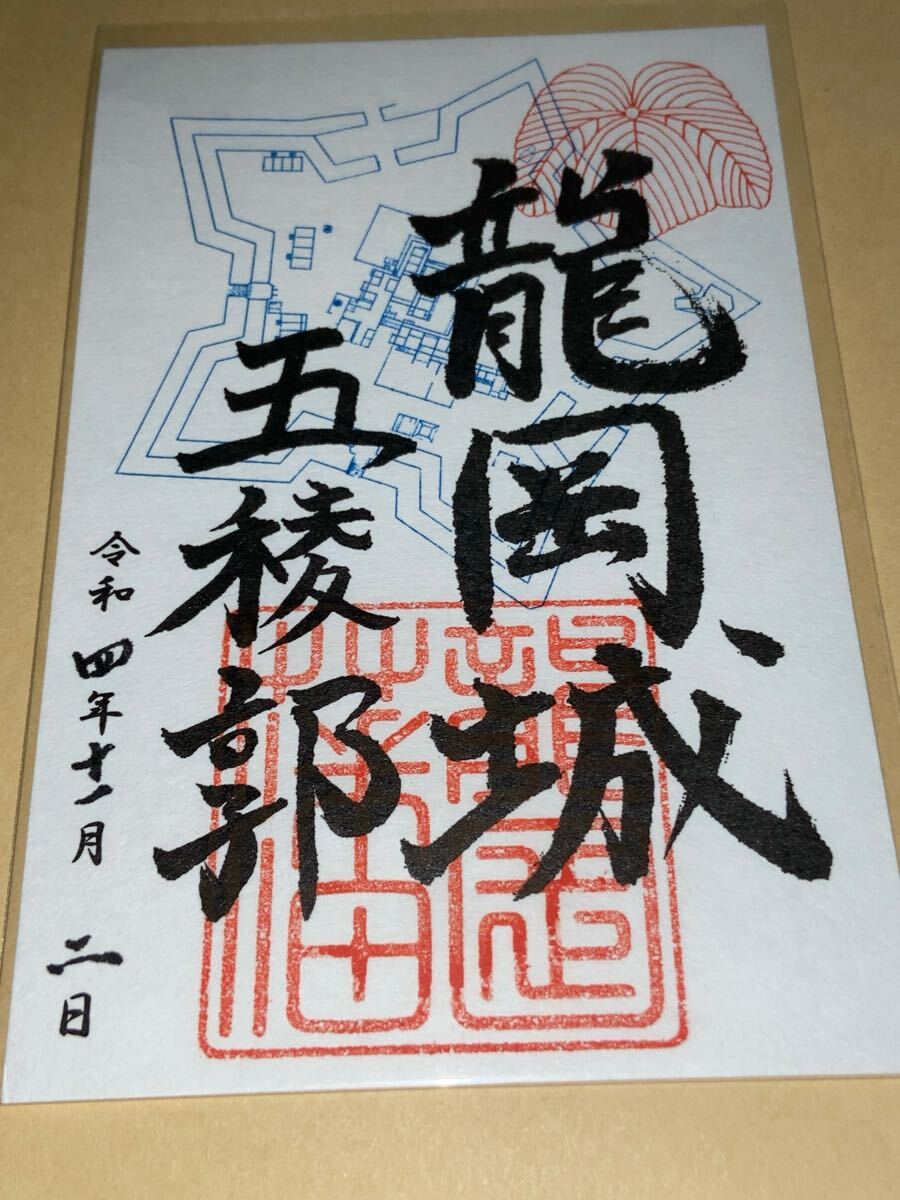 龍岡城
五稜郭
令和四年十一月 二日